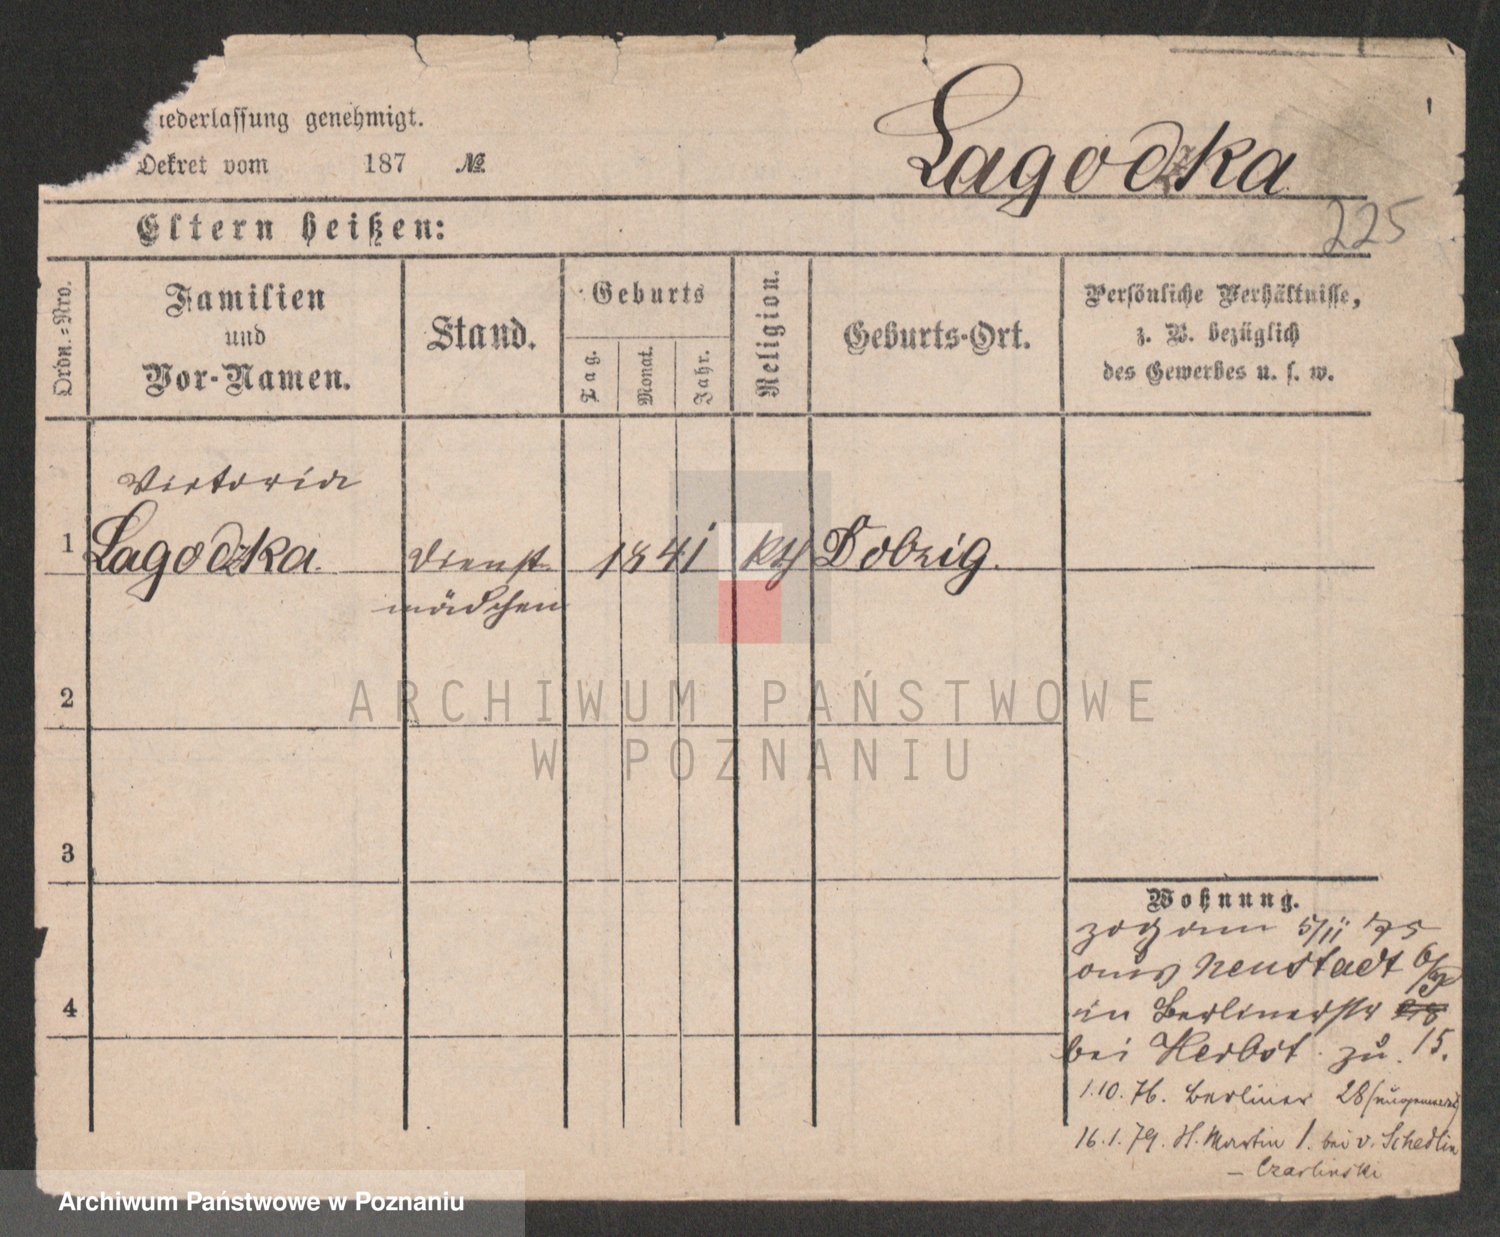 iederlassung genehmigt.
Dekret vom 187 №
Lagodzka
225
Eltern heißen:
Ordn.=Nro.
Familien
und
Vor-Namen.
Stand.
Geburts
Tag.
Monat.
Jahr.
Religion.
Geburts-Ort.
Persönliche Verhältnisse,
z. B. bezüglich
des Gewerbes u. s. w.
Victoria
1 Lagodzka. Dienst- 1841 kth Dobzig.
mädchen
2
3
4
Wohnung.
zog am 5/11 75
aus Neustadt
in Berlinerstr 28
bei Herbst zu. 15.
1.10.76. Berliner 28
16.1.79. St. Martin 1. bei v. Schedlin
- Czarlinski
ARCHIWUM PAŃSTWOWE
W POZNANIU
Archiwum Państwowe w Poznaniu